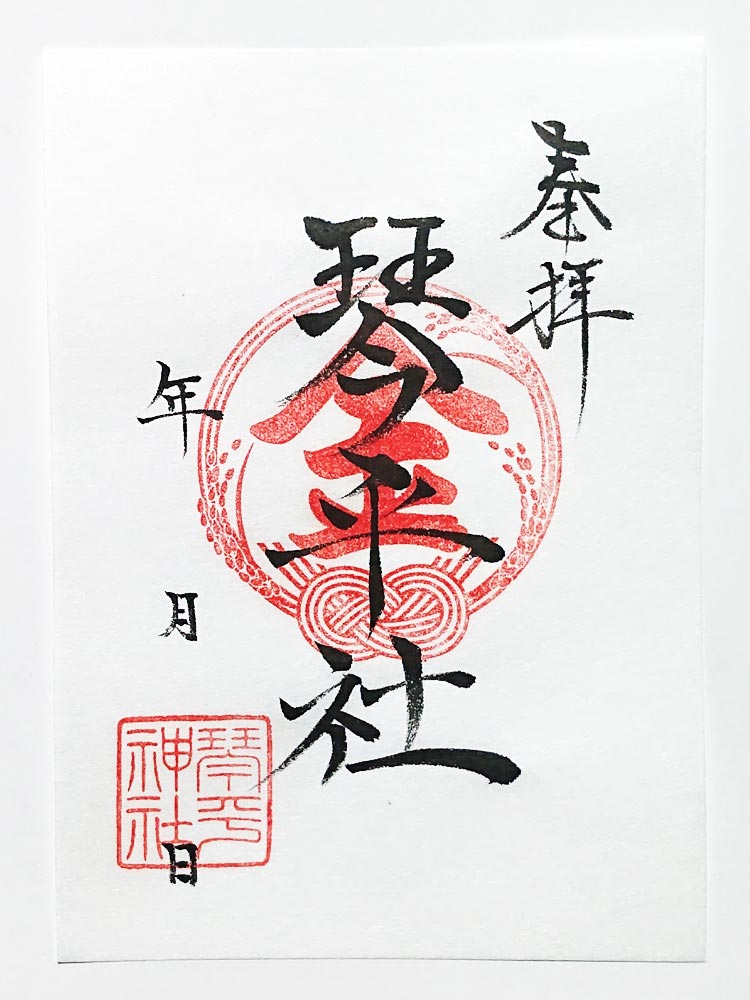 奉拝
琴平社
金
年 月 日
琴平
神社